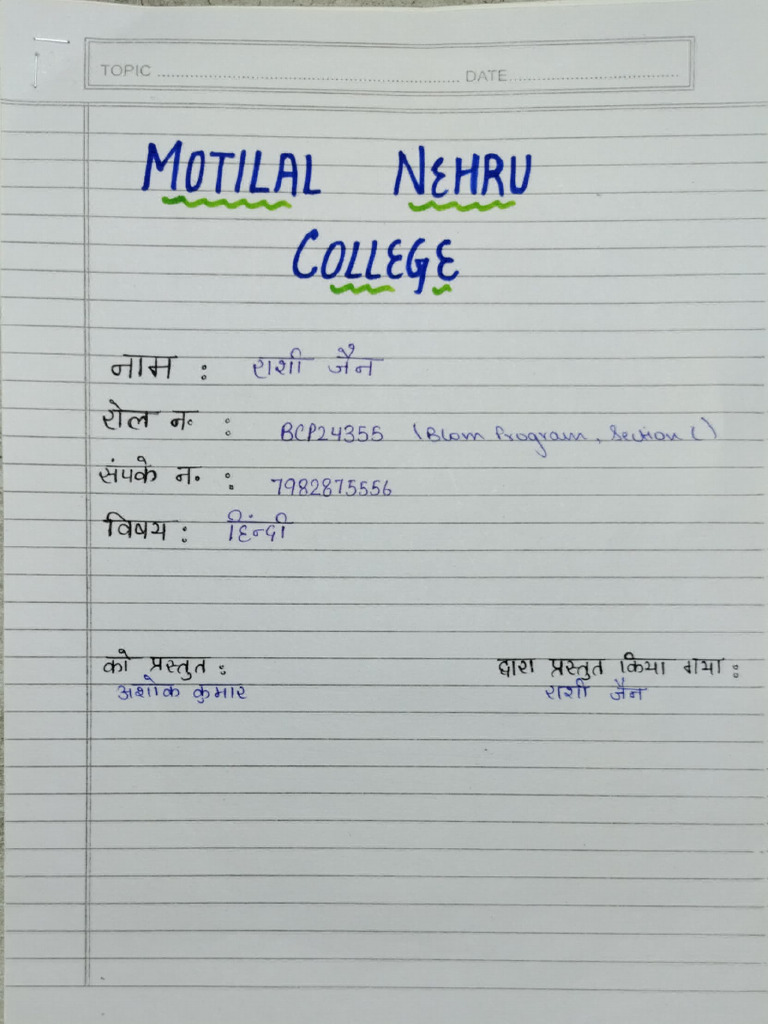 TOPIC ........ DATE........
MOTILAL NEHRU
COLLEGE
नाम : राशी जैन
रोल न. : BCP24355 (Bcom Program, Section C)
संपर्क न. : 7982875556
विषय : हिंन्दी
को प्रस्तुत : द्वारा प्रस्तुत किया गया :
अशोक कुमार राशी जैन